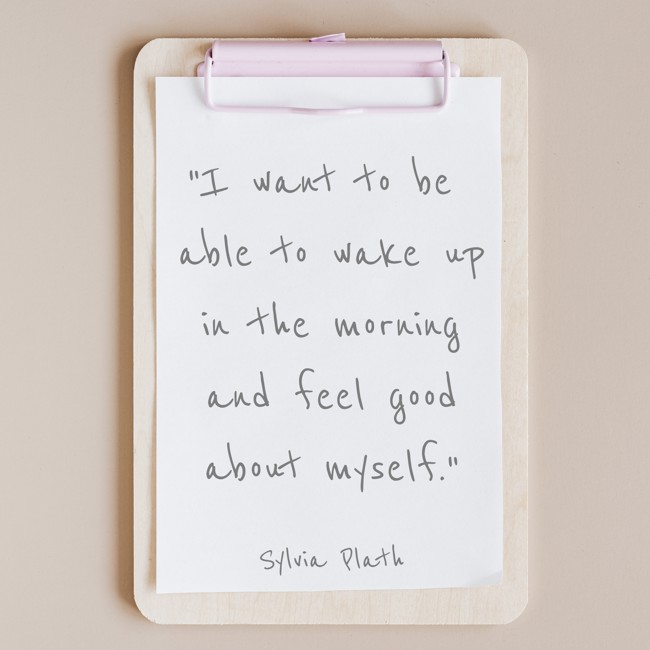 "I want to be
able to wake up
in the morning
and feel good
about myself."
Sylvia Plath